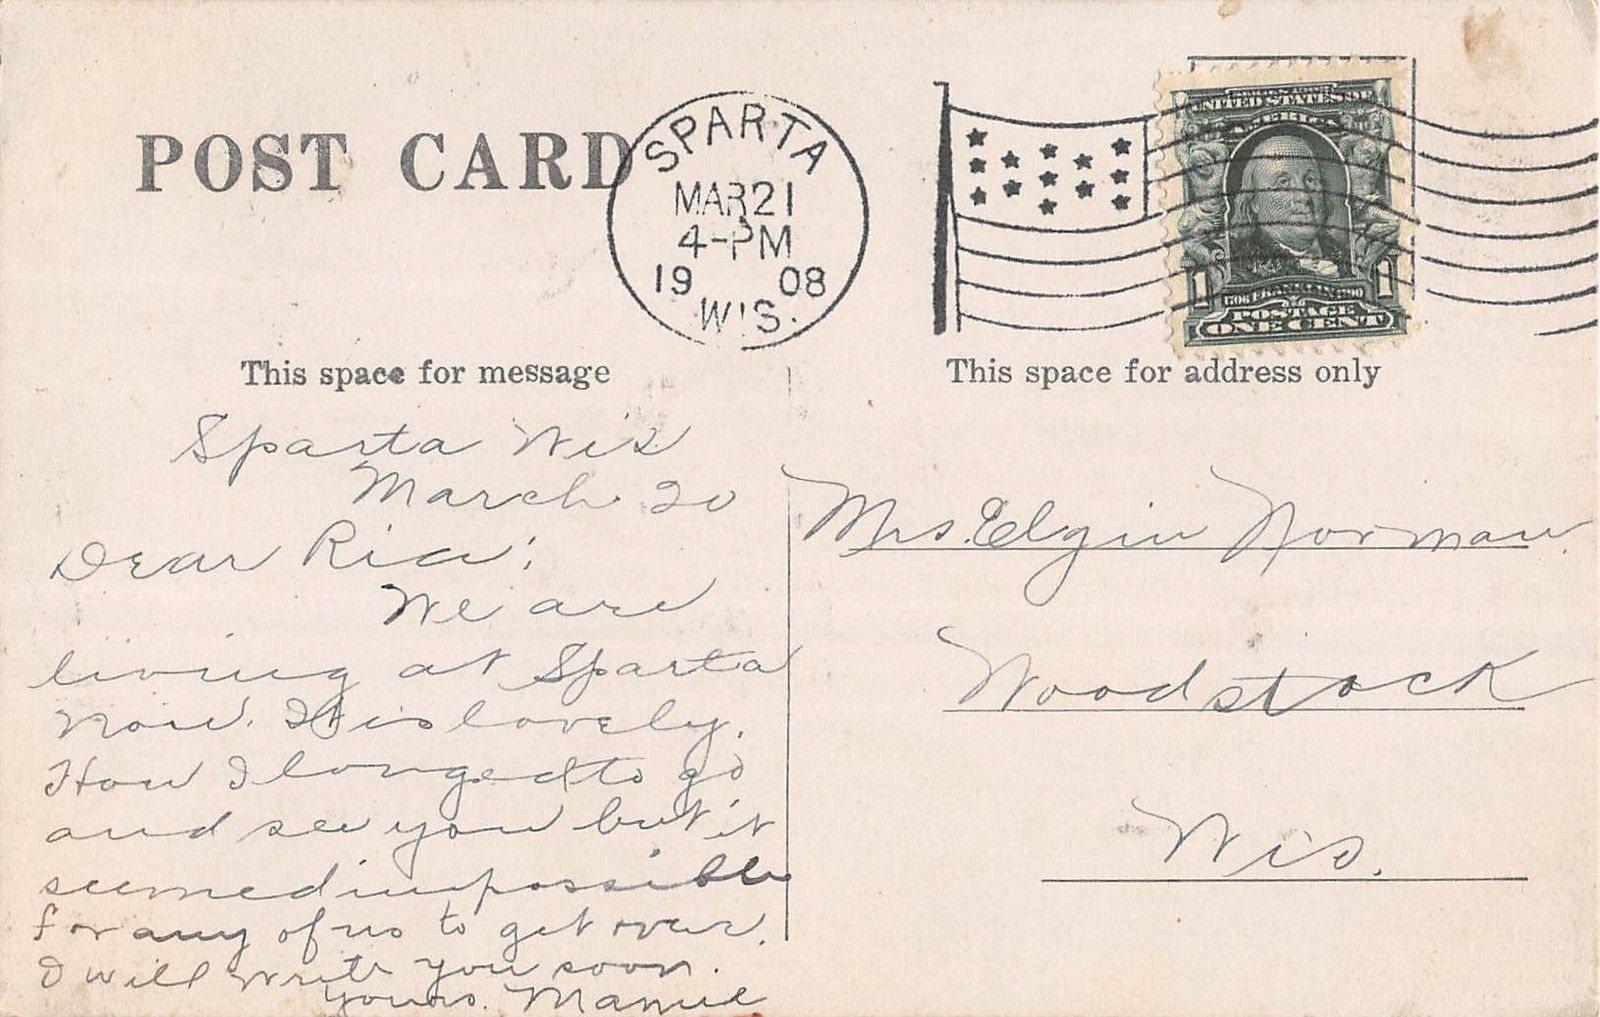 POST CARD
SPARTA
MAR 21
4-PM
19 08
WIS.
UNITED STATES OF
AMERICA
1 1
POSTAGE
ONE CENT
This space for message
This space for address only
Sparta Wis
March 20
Dear Ria:
We are
living at Sparta
now. It is lovely.
How I longed to go
and see you but it
seemed impossible
for any of us to get over.
I will write you soon.
Yours. Mamie
Mrs. Elgin Norman.
Woodstock
Wis.